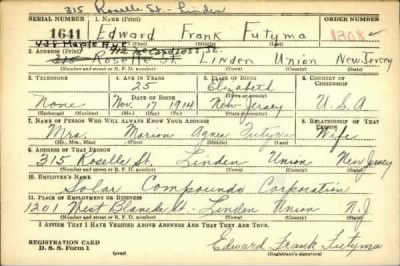 315 Roselle St. - Linden
SERIAL NUMBER 1. NAME (Print) ORDER NUMBER
1641 Edward Frank Futyma 1308
(First) (Middle) (Last)
438 Maple Ave. 412
2. ADDRESS (Print)
315 Roselle St. Linden Union New Jersey
(Number and street or R. F. D. number) (Town) (County) (State)
3. TELEPHONE 4. AGE IN YEARS 5. PLACE OF BIRTH 6. COUNTRY OF CITIZENSHIP
25 Elizabeth
DATE OF BIRTH (Town or county)
None Nov. 17 1914 New Jersey U.S.A
(Exchange) (Number) (Mo.) (Day) (Yr.) (State or country)
7. NAME OF PERSON WHO WILL ALWAYS KNOW YOUR ADDRESS 8. RELATIONSHIP OF THAT PERSON
Mrs. Marion Agnes Futyma Wife
(Mr., Mrs., Miss) (First) (Middle) (Last)
9. ADDRESS OF THAT PERSON
315 Roselle St. Linden Union New Jersey
(Number and street or R. F. D. number) (Town) (County) (State)
10. EMPLOYER'S NAME
Solar Compounds Corporation
11. PLACE OF EMPLOYMENT OR BUSINESS
1201 West Blancke St - Linden Union N.J
(Number and street or R. F. D. number) (Town) (County) (State)
I AFFIRM THAT I HAVE VERIFIED ABOVE ANSWERS AND THAT THEY ARE TRUE.
REGISTRATION CARD
D. S. S. Form 1 Edward Frank Futyma
(Registrant's signature)